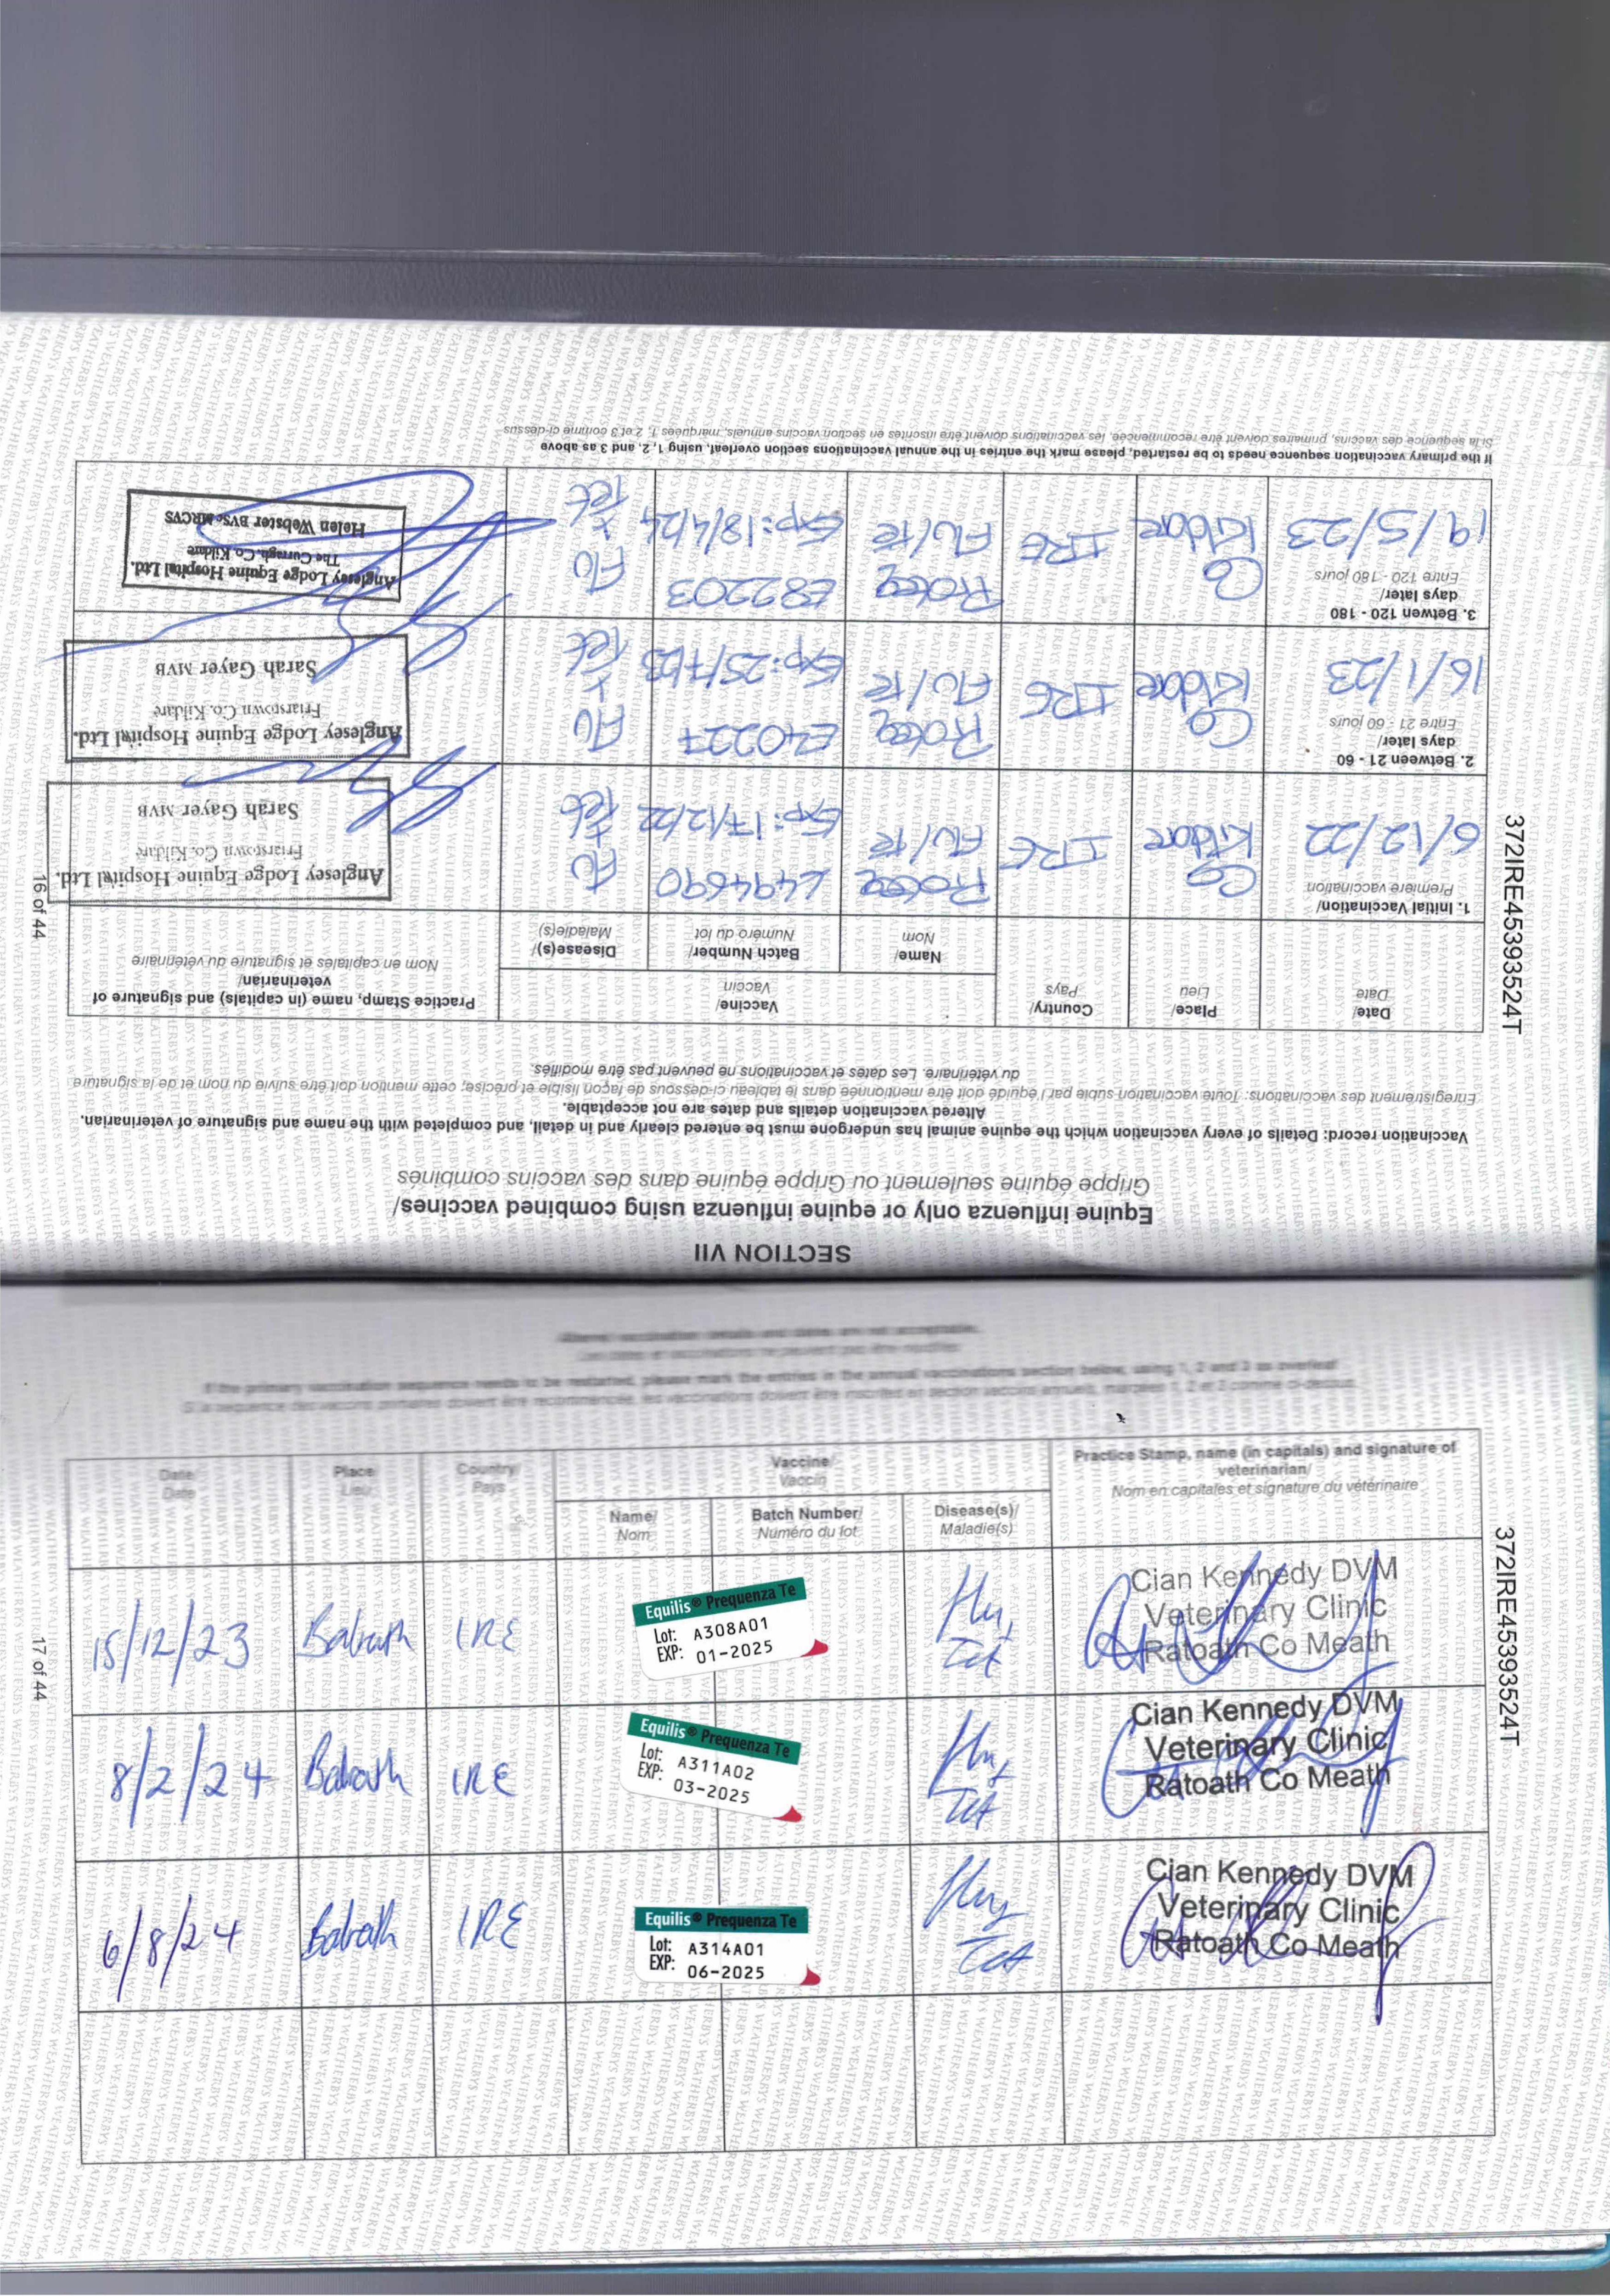 SECTION VII
Equine influenza only or equine influenza using combined vaccines/
Grippe équine seulement ou Grippe équine dans des vaccins combinés
Vaccination record: Details of every vaccination which the equine animal has undergone must be entered clearly and in detail, and completed with the name and signature of veterinarian.
Altered vaccination details and dates are not acceptable.
Enregistrement des vaccinations: Toute vaccination subie par l'équidé doit être mentionnée dans le tableau ci-dessous de façon lisible et précise; cette mention doit être suivie du nom et de la signature
du vétérinaire. Les dates et vaccinations ne peuvent pas être modifiés.
Date/
Date
Place/
Lieu
Country/
Pays
Vaccine/
Vaccin
Name/
Nom
Batch Number/
Numéro du lot
Disease(s)/
Maladie(s)
Practice Stamp, name (in capitals) and signature of
veterinarian/
Nom en capitales et signature du vétérinaire
1. Initial Vaccination/
Première vaccination
6/12/22
Co
Kildare
IRE
Proteq
Flu/Te
L494690
Exp: 17/12/22
Flu
+
Tet
Anglesey Lodge Equine Hospital Ltd.
Friarstown Co. Kildare
Sarah Gayer MVB
2. Between 21 - 60
days later/
Entre 21 - 60 jours
16/1/23
Co
Kildare
IRE
Proteq
Flu/Te
E40227
Exp: 25/7/23
Flu
+
Tet
Anglesey Lodge Equine Hospital Ltd.
Friarstown Co. Kildare
Sarah Gayer MVB
3. Betwen 120 - 180
days later/
Entre 120 - 180 jours
19/5/23
Co
Kildare
IRE
Proteq
Flu/Te
E82203
Exp: 18/4/24
Flu
+
Tet
Anglesey Lodge Equine Hospital Ltd.
The Curragh, Co. Kildare
Helen Webster BVSc MRCVS
If the primary vaccination sequence needs to be restarted, please mark the entries in the annual vaccinations section overleaf, using 1, 2, and 3 as above
Si la séquence des vaccins, primaires doivent être recommencée, les vaccinations doivent être inscrites en section vaccins annuels, marquées 1, 2 et 3 comme ci-dessus
372IRE45393524T
16 of 44
Altered vaccination details and dates are not acceptable.
Les dates et vaccinations ne peuvent pas être modifiés
If the primary vaccination sequence needs to be restarted, please mark the entries in the annual vaccinations section below, using 1, 2 and 3 as overleaf
Si la séquence des vaccins primaires doivent être recommencée, les vaccinations doivent être inscrites en section vaccins annuels, marquées 1, 2 et 3 comme ci-dessus.
Date/
Date
Place/
Lieu
Country/
Pays
Vaccine/
Vaccin
Name/
Nom
Batch Number/
Numéro du lot
Disease(s)/
Maladie(s)
Practice Stamp, name (in capitals) and signature of
veterinarian/
Nom en capitales et signature du vétérinaire
15/12/23
Balrath
IRE
Equilis® Prequenza Te
Lot: A308A01
EXP: 01-2025
Flu,
Tet
Cian Kennedy DVM
Veterinary Clinic
Ratoath Co Meath
8/2/24
Balrath
IRE
Equilis® Prequenza Te
Lot: A311A02
EXP: 03-2025
Flu,
Tet
Cian Kennedy DVM
Veterinary Clinic
Ratoath Co Meath
6/8/24
Balrath
IRE
Equilis® Prequenza Te
Lot: A314A01
EXP: 06-2025
Flu,
Tet
Cian Kennedy DVM
Veterinary Clinic
Ratoath Co Meath
372IRE45393524T
17 of 44